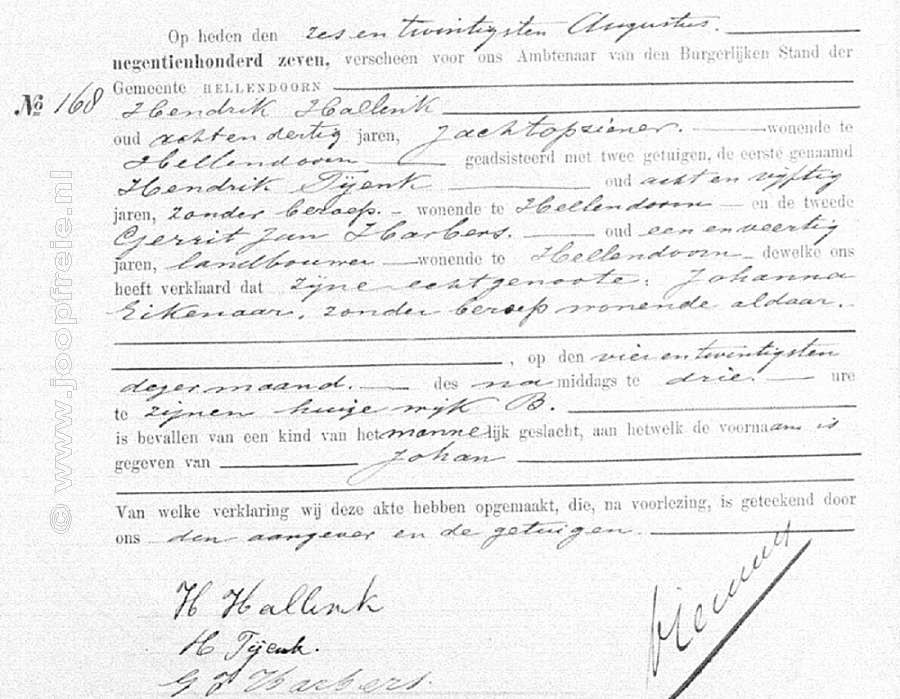 Op heden den zes en twintigsten Augustus.
negentienhonderd zeven, verscheen voor ons Ambtenaar van den Burgerlijken Stand der
Gemeente HELLENDOORN
No 168
Hendrik Hallink
oud acht en dertig jaren, jachtopziener. wonende te
Hellendoorn geadsisteerd met twee getuigen, de eerste genaamd
Hendrik Tijenk oud acht en vijftig
jaren, zonder beroep. wonende te Hellendoorn en de tweede
Gerrit Jan Harbers. oud een en veertig
jaren, landbouwer wonende te Hellendoorn dewelke ons
heeft verklaard dat zijne echtgenoote, Johanna
Eikenaar, zonder beroep wonende aldaar.
, op den vier en twintigsten
dezer maand. des na middags te drie ure
te zijnen huize wijk B.
is bevallen van een kind van het mannelijk geslacht, aan hetwelk de voornaam is
gegeven van Johan
Van welke verklaring wij deze akte hebben opgemaakt, die, na voorlezing, is geteekend door
ons den aangever en de getuigen.
H Hallink
H Tijenk.
G J Harbers.
© www.joopfreie.nl